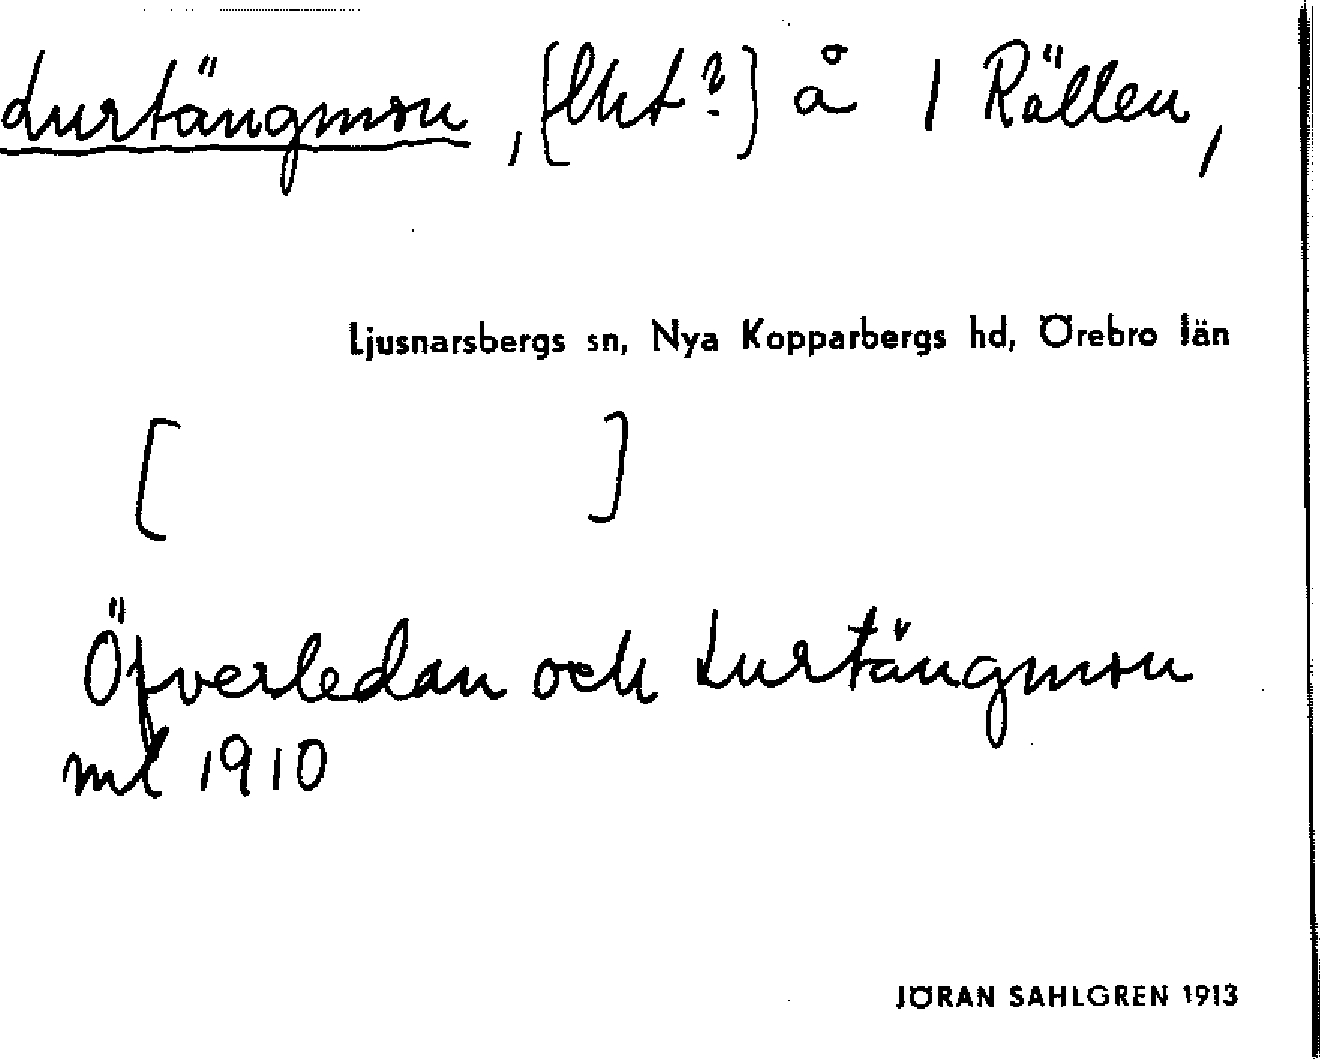 Lurtängmon, [lht?] å 1 Rällen,
Ljusnarsbergs sn, Nya Kopparbergs hd, Örebro län
[ ]
Öfverledan och Lurtängmon
ml 1910
JÖRAN SAHLGREN 1913